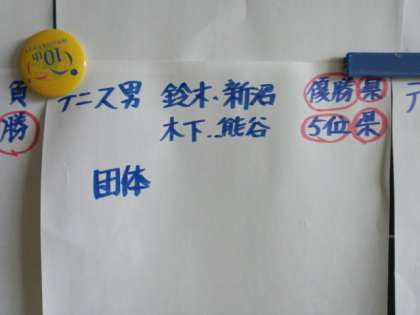 負
勝
テニス男 鈴木・新沼 優勝 県
木下・熊谷 5位 県
団体
10th
テ